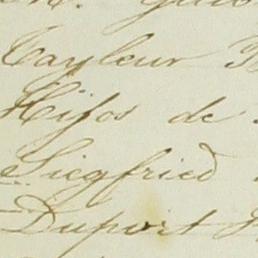 Tayleur
Hijos de
Siegfried
Duport